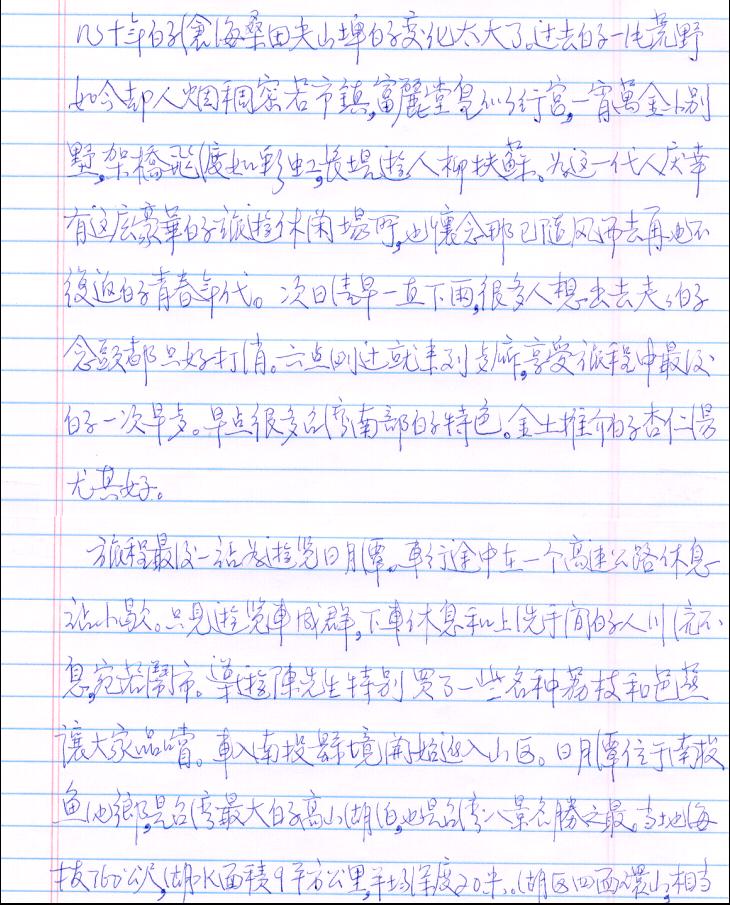 几十年的滄海桑田尖山埤的变化太大了。过去的一片荒野
如今却人烟稠密若市鎮,富麗堂皇似行宮,一宵萬金小別
墅,架橋飛度如彩虹,長堤遊人柳扶蘇。为这一代人庆幸
有这麽豪華的旅遊休闲場所,也懷念那已随风而去再也不
復返的青春年代。次日清早一直下雨,很多人想出去走々的
念頭都只好打消。六点刚过就来到歺廳,享受旅程中最后
的一次早歺。早点很多台湾南部的特色。金土推介的杏仁湯
尤其好。
旅程最后一站为遊览日月潭。車行途中在一个高速公路休息
站小歇。只见遊览車成群,下車休息和上洗手间的人川流不
息,宛若鬧市。導遊陳先生特别買了一些各种荔枝和芭蕉
讓大家品嚐。車入南投縣境開始进入山区。日月潭位于南投
鱼池鄉,是台湾最大的高山湖泊,也是台湾八景名勝之最。当地海
拔760公尺,湖水面積9平方公里,平均深度20米。湖区四面環山,相当